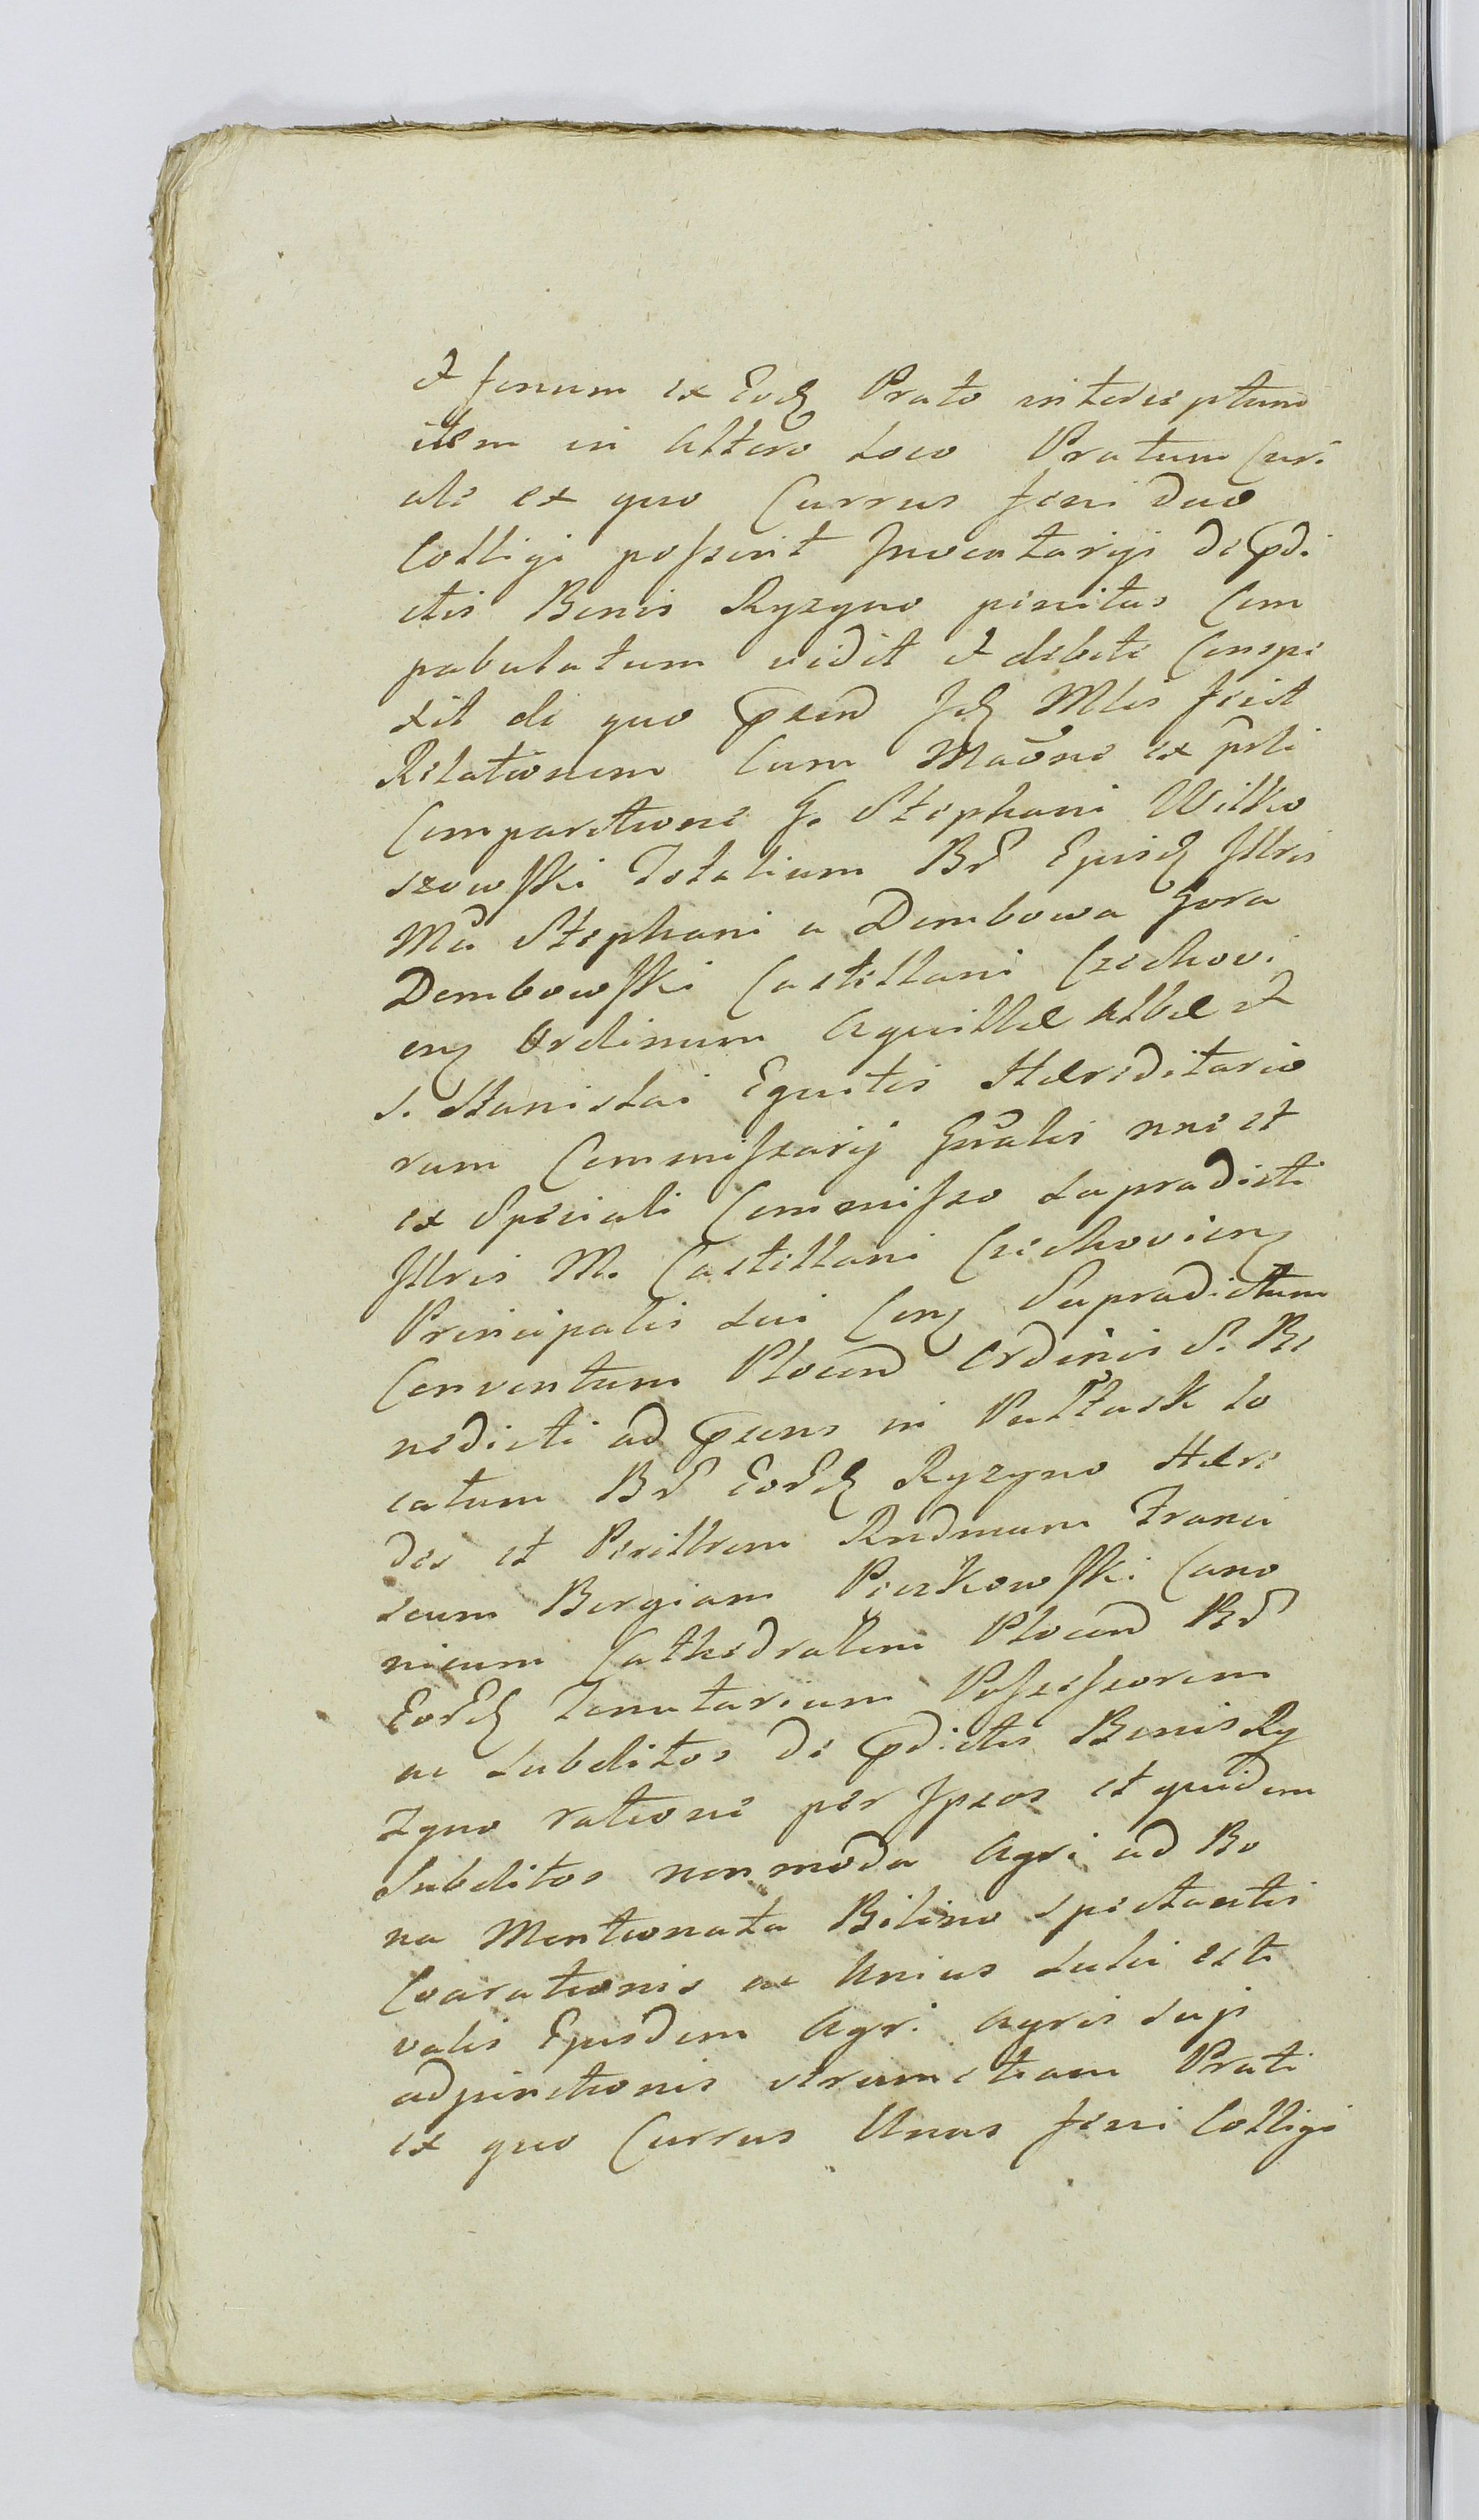 et fenum ex Eodq Prato interceptum
item in Altero Loco Pratum Curi
ale ex quo Currus feni duo
Colligi possent Inventarijs de pdi
ctis Bonis Ryzyno penitus Com
pabulatum vidit et debite Conspe
xit de quo psens Idq Mlis fecit
Relationem Cum Maōne ex prti
Comparitione G. Stephani Wilko
szowski Totalium Br Epusq Illris
Md Stephani a Dembowa Gora
Dembowski Castellani Czechovi
enq Ordinum Aquillæ Albæ et
S. Stanislai Equitis Hæreditario
rum Commissarij Gñalis nne et
ex Speciali Commisso Supradicti
Illris M. Castellani Czechovienq
Principalis Sui Conq Supradictum
Conventum Plocen Ordinis S. Be
nedicti ad psens in Pułtusk lo
catum Br Eorq Ryzyno Hære
des et Perillrem Rndmum Franci
scum Borgiam Pieńkowski Cano
nicum Cathedralem Plocen Br
Eorq Tenutarium Possessorem
ac Subditos de pdictis Bonis Ry
zyno ratione per Ipsos et quidem
Subditos non moda Agri ad Bo
na Mentionata Bilino Spectantis
Coarationis ac Unius Sulci esti
valis Ejusdem Agri Agris Suis
adjunctionis verum etiam Prati
ex quo Currus Unus feni Colligi